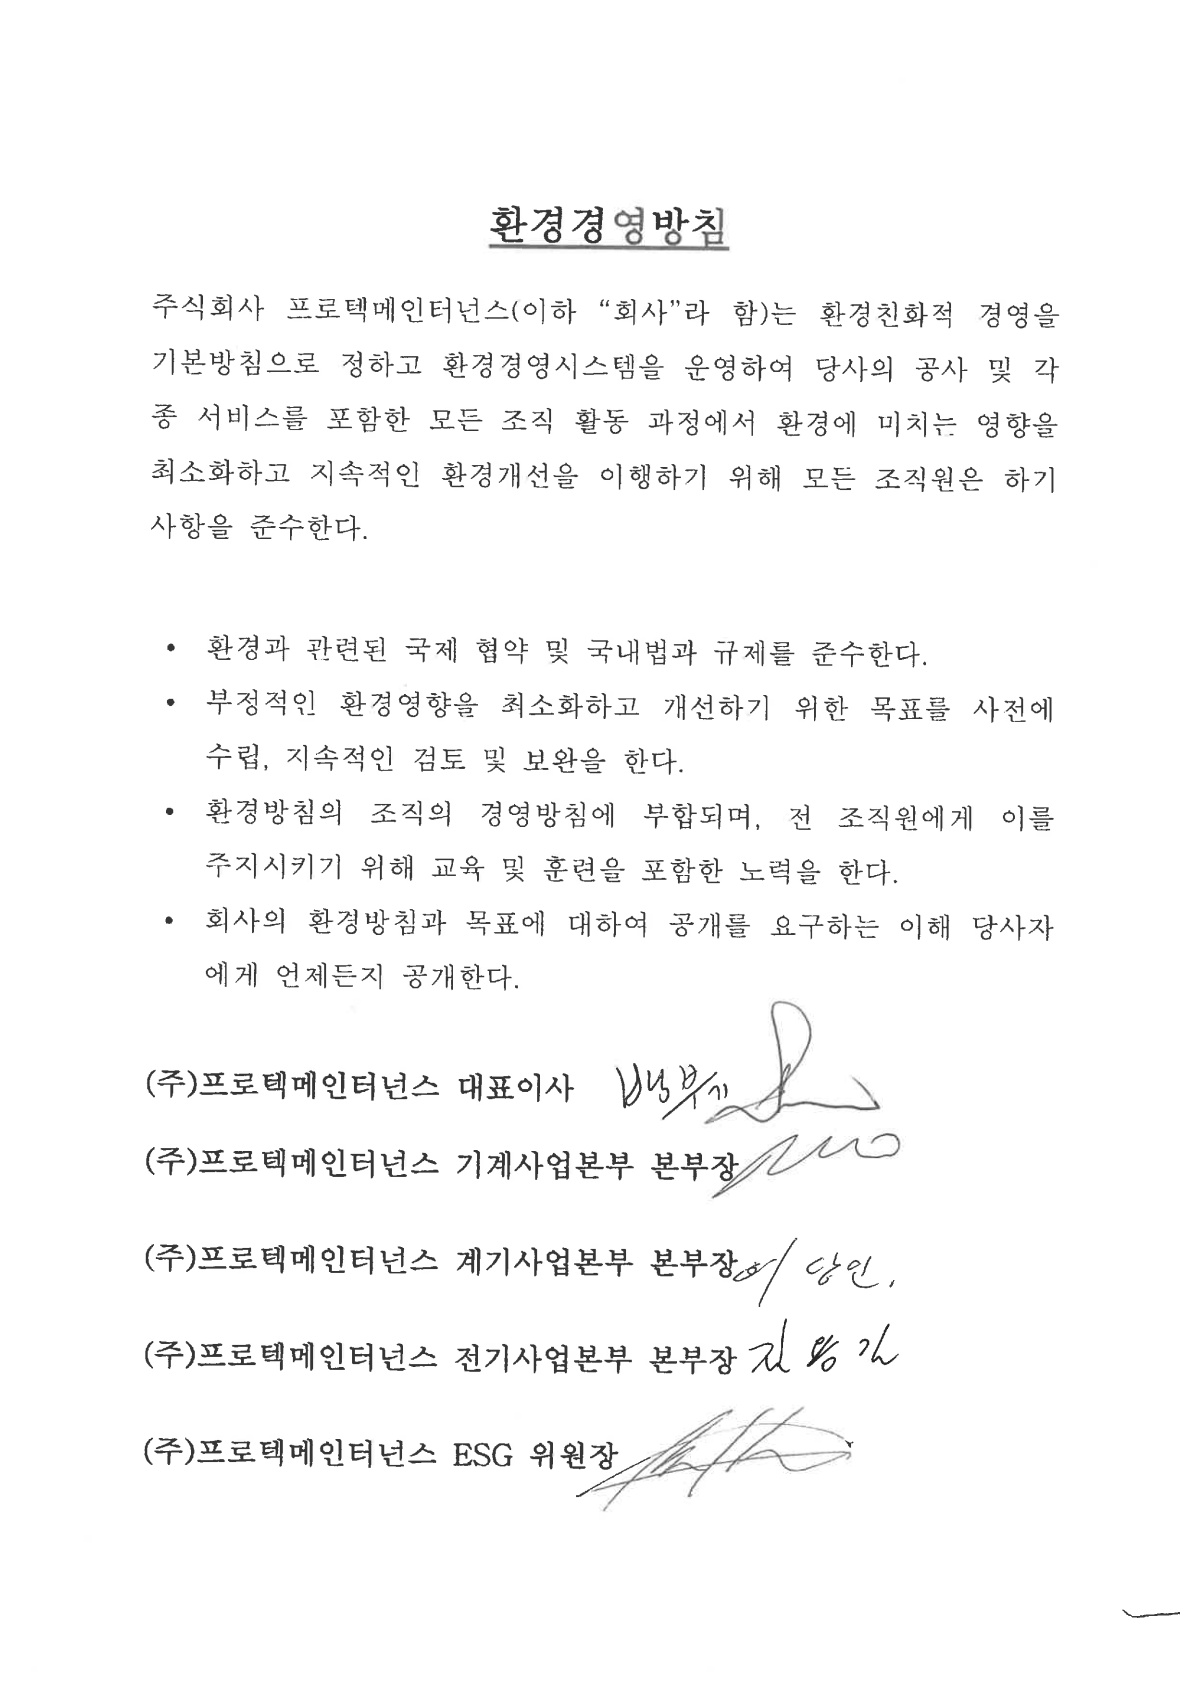 환경경영방침
주식회사 프로텍메인터넌스(이하 “회사”라 함)는 환경친화적 경영을
기본방침으로 정하고 환경경영시스템을 운영하여 당사의 공사 및 각
종 서비스를 포함한 모든 조직 활동 과정에서 환경에 미치는 영향을
최소화하고 지속적인 환경개선을 이행하기 위해 모든 조직원은 하기
사항을 준수한다.
• 환경과 관련된 국제 협약 및 국내법과 규제를 준수한다.
• 부정적인 환경영향을 최소화하고 개선하기 위한 목표를 사전에
수립, 지속적인 검토 및 보완을 한다.
• 환경방침의 조직의 경영방침에 부합되며, 전 조직원에게 이를
주지시키기 위해 교육 및 훈련을 포함한 노력을 한다.
• 회사의 환경방침과 목표에 대하여 공개를 요구하는 이해 당사자
에게 언제든지 공개한다.
(주)프로텍메인터넌스 대표이사
(주)프로텍메인터넌스 기계사업본부 본부장
(주)프로텍메인터넌스 계기사업본부 본부장
(주)프로텍메인터넌스 전기사업본부 본부장
(주)프로텍메인터넌스 ESG 위원장